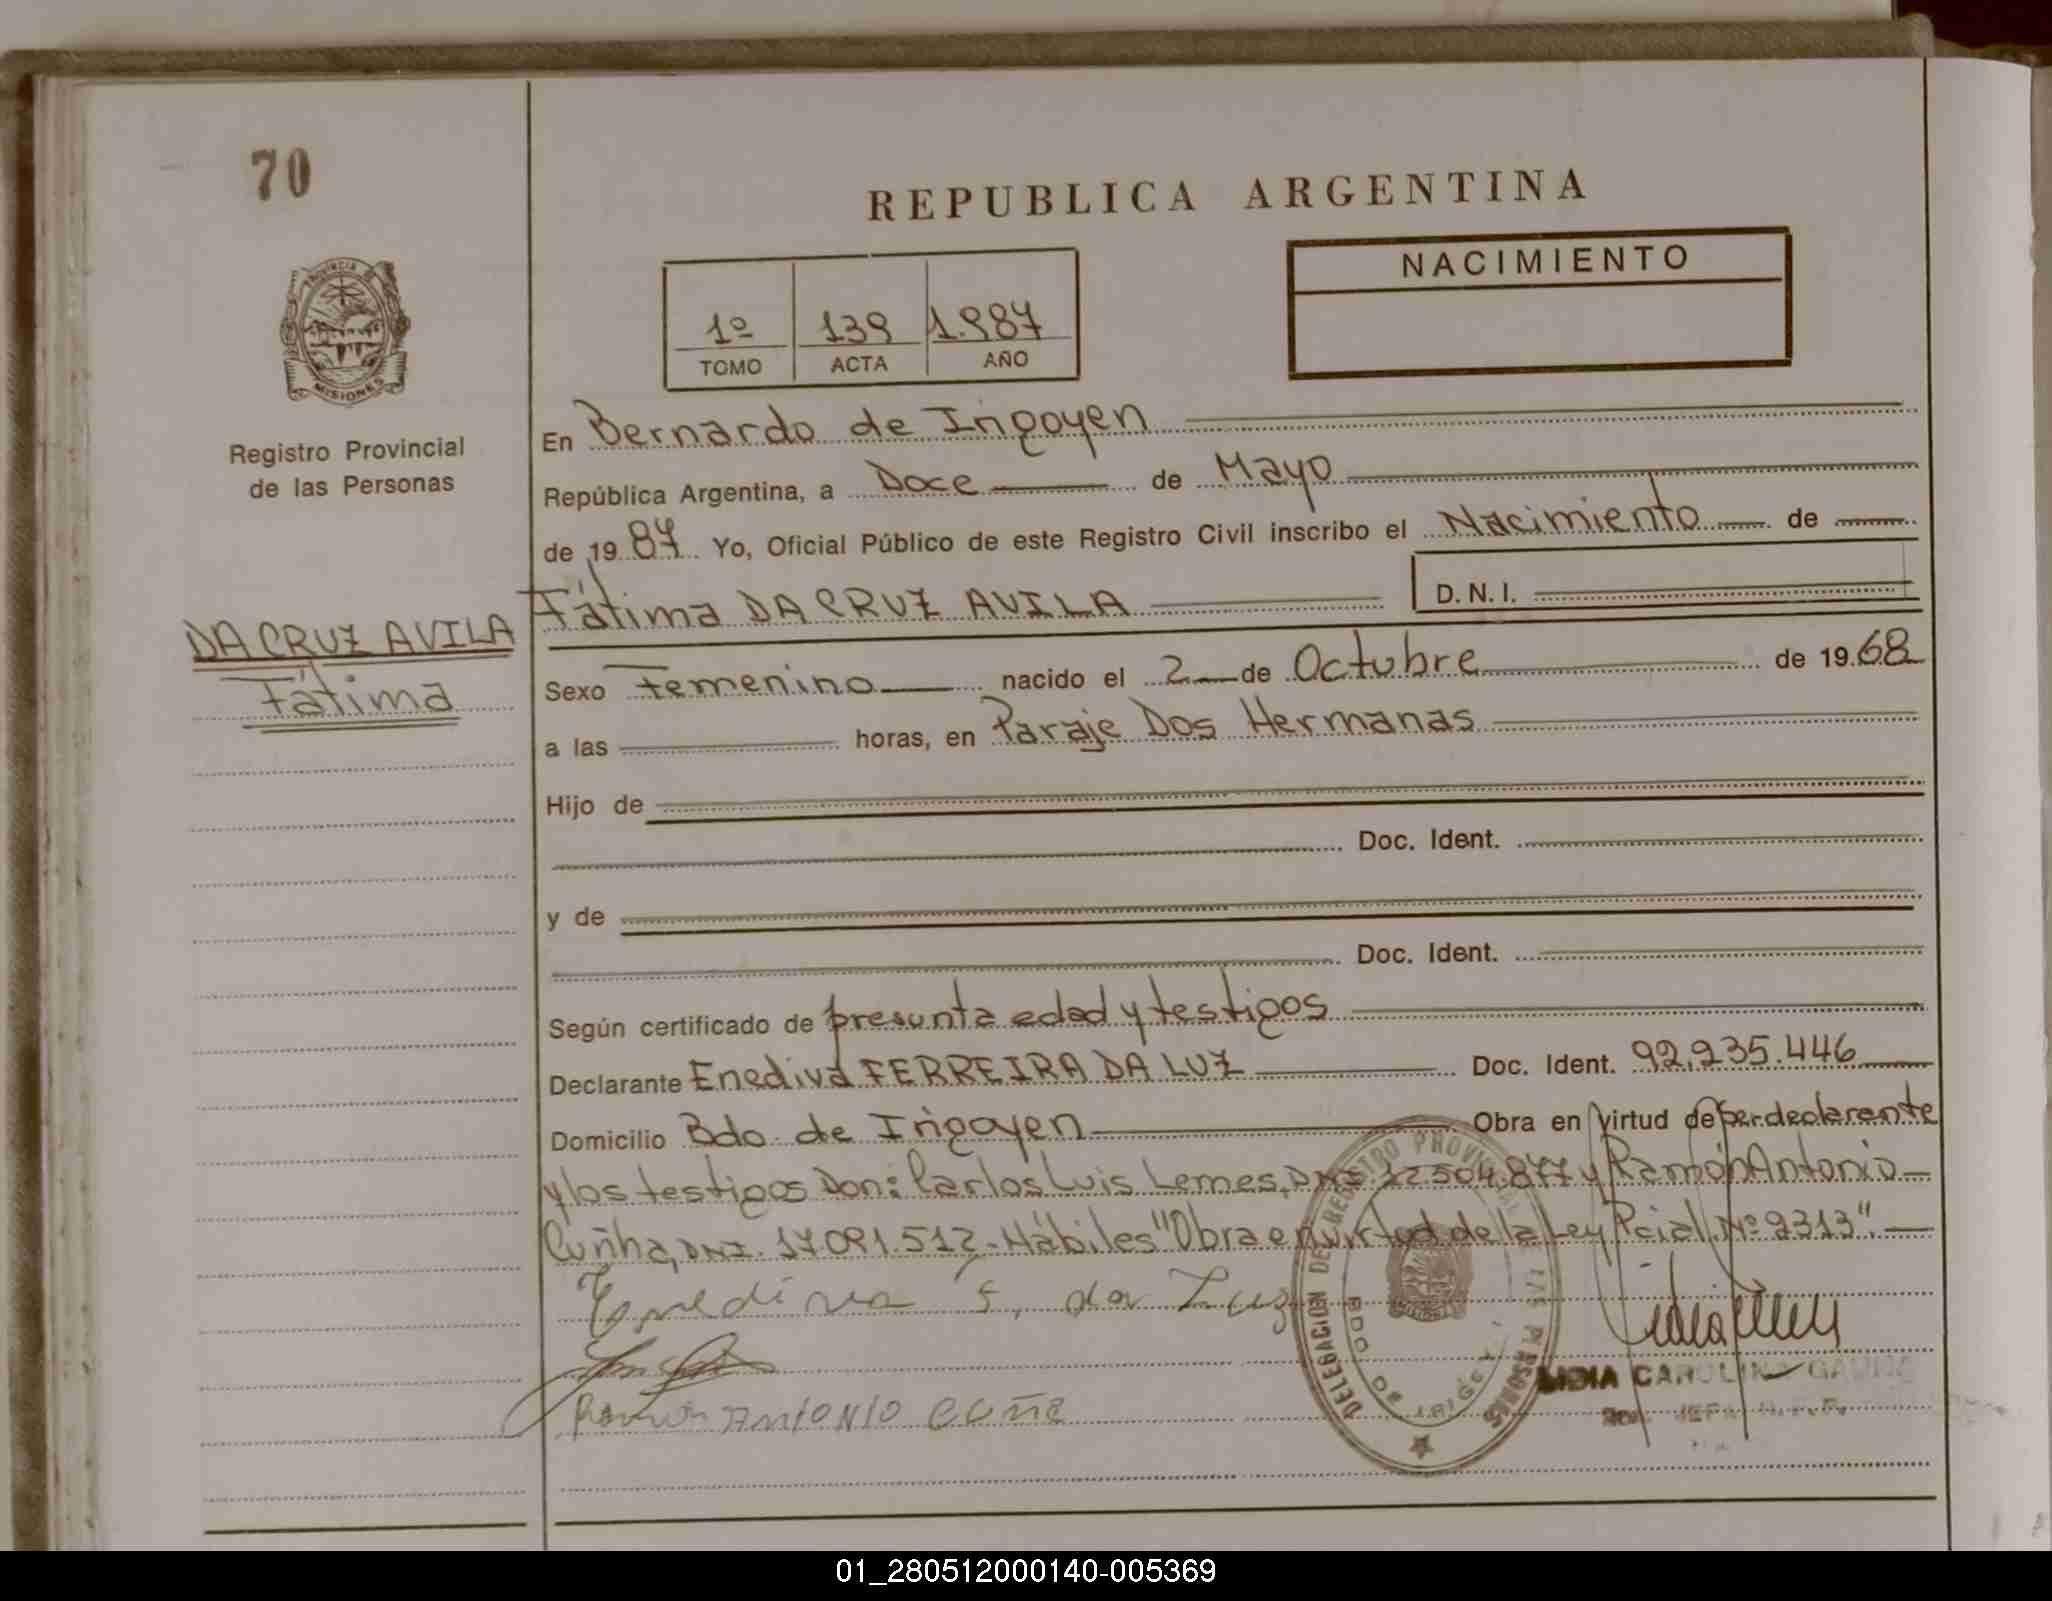 70
REPUBLICA ARGENTINA
NACIMIENTO
1º 139 1.987
TOMO ACTA AÑO
PROVINCIA DE
MISIONES
Registro Provincial
de las Personas
DA CRUZ AVILA
Fátima
En Bernardo de Irigoyen
República Argentina, a Doce de Mayo
de 19 87 Yo, Oficial Público de este Registro Civil inscribo el Nacimiento de
Fátima DA CRUZ AVILA D. N. I.
Sexo Femenino nacido el 2 de Octubre de 19 68
a las horas, en Paraje Dos Hermanas
Hijo de
Doc. Ident.
y de
Doc. Ident.
Según certificado de presunta edad y testigos
Declarante Enediva FERREIRA DA LUZ Doc. Ident. 92.235.446
Domicilio Bdo. de Irigoyen Obra en virtud de ser declarante
y los testigos Don: Carlos Luis Lemes, DNI. 12.504.877 y Ramón Antonio
Cuñha, DNI. 17.091.512.- Hábiles "Obra en virtud de la Ley Pcial. Nº 2313".
Enediva F. da Luz
Ramón ANTONIO CUÑA
DELEGACION DEL REGISTRO PROVINCIAL DE LAS PERSONAS
BDO DE IRIGOYEN
LIDIA CAROLINA
01_280512000140-005369